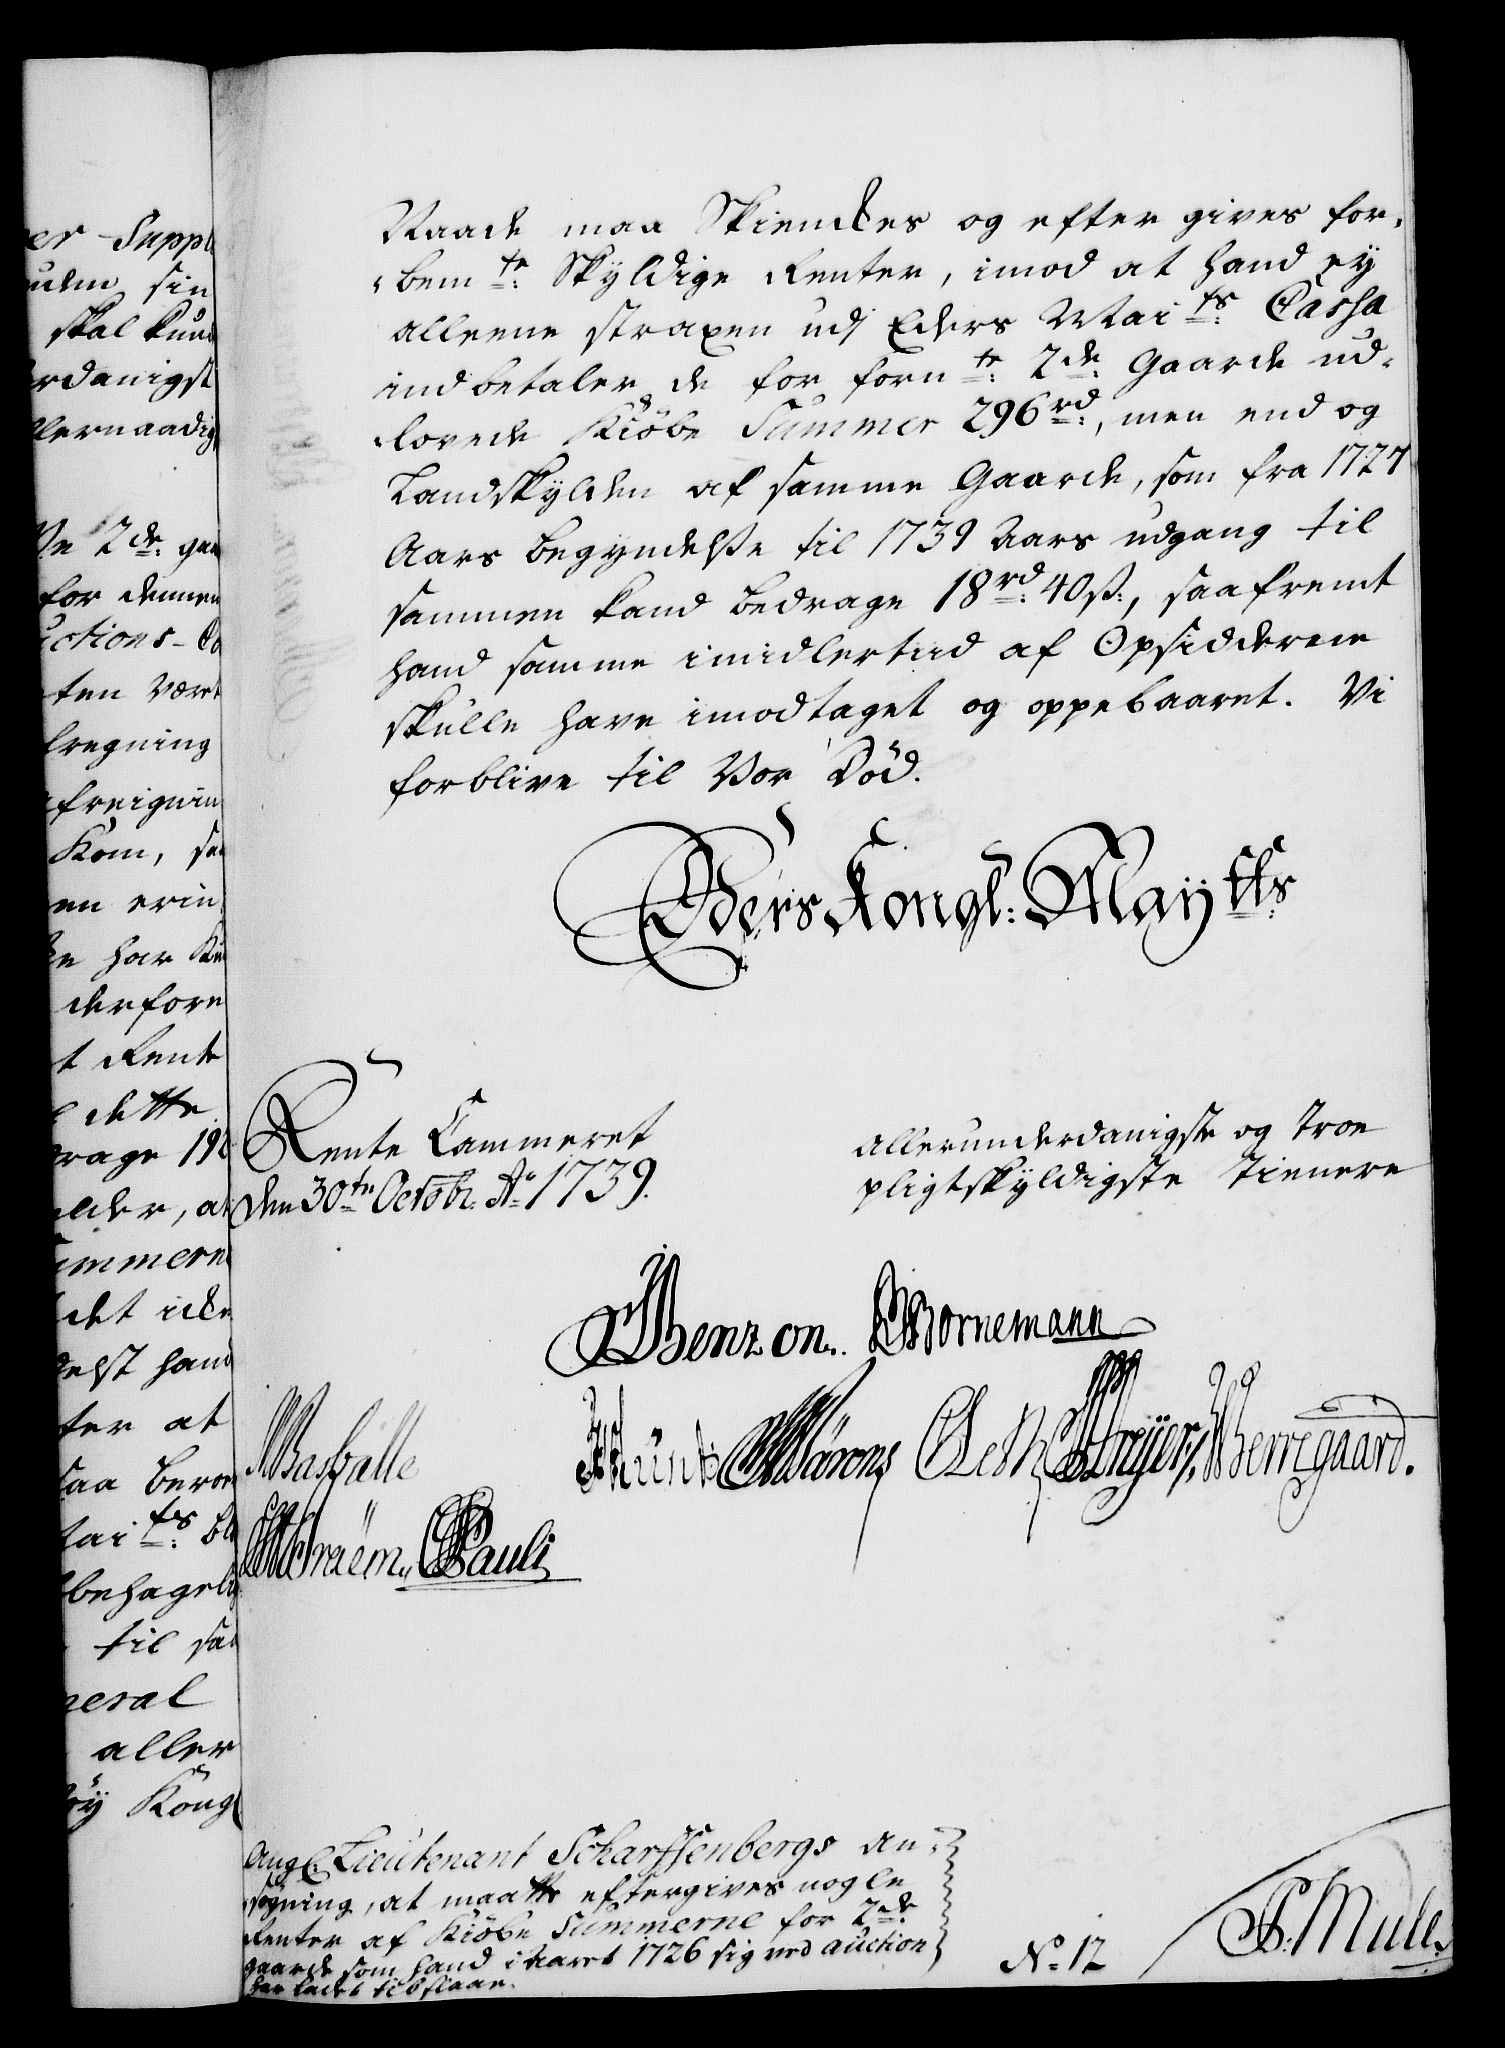 er Suppl
skal kun
rdanigst
llernaadig
2de: gaa
for dennem
uctions-Co
ten vært
fregning
Kom, sa
en erin
har Ki
derfore
t Rente
dette
drage 19
elder, at
ummerne
det icke
helst hand
ter at
saa beroe
Mai ts: bl
behagelig
til saa
neral
aller
öy Kong
Naade maa Skienckes og eftergives for-
bem te: Skyldige Renter, imod at hand ey
alleene straxen udj Eders Mai ts: Cassa
indbetaler de for forn te: 2de: Gaarde ud-
lovede Kiöbe Summer 296 rd:, men end og
Landskylden af samme Gaarde, som fra 1727
Aars begyndelse til 1739 Aars udgang til
sammen kand bedrage 18 rd: 40 s:, saafremt
hand samme imidlertiid af Opsidderne
skulle have imodtaget og oppebaaret. Vi
forblive til Vor Död.
Eders Kongl: May tts:
Rente Cammeret
den 30te Octobr: Ao 1739.
allerunderdanigste og troe
pligtskyldigste tienere
Benzon. Bornemann
Basballe
Berregaard.
Pauli
Angl: Lieutenant Scharffenbergs an-
sögning, at maatte eftergives nogle
Renter af Kiöbe Summerne for 2de
gaarde som hand i Aaret 1726 sig ved auction
har ladet tilslaae.
No: 12